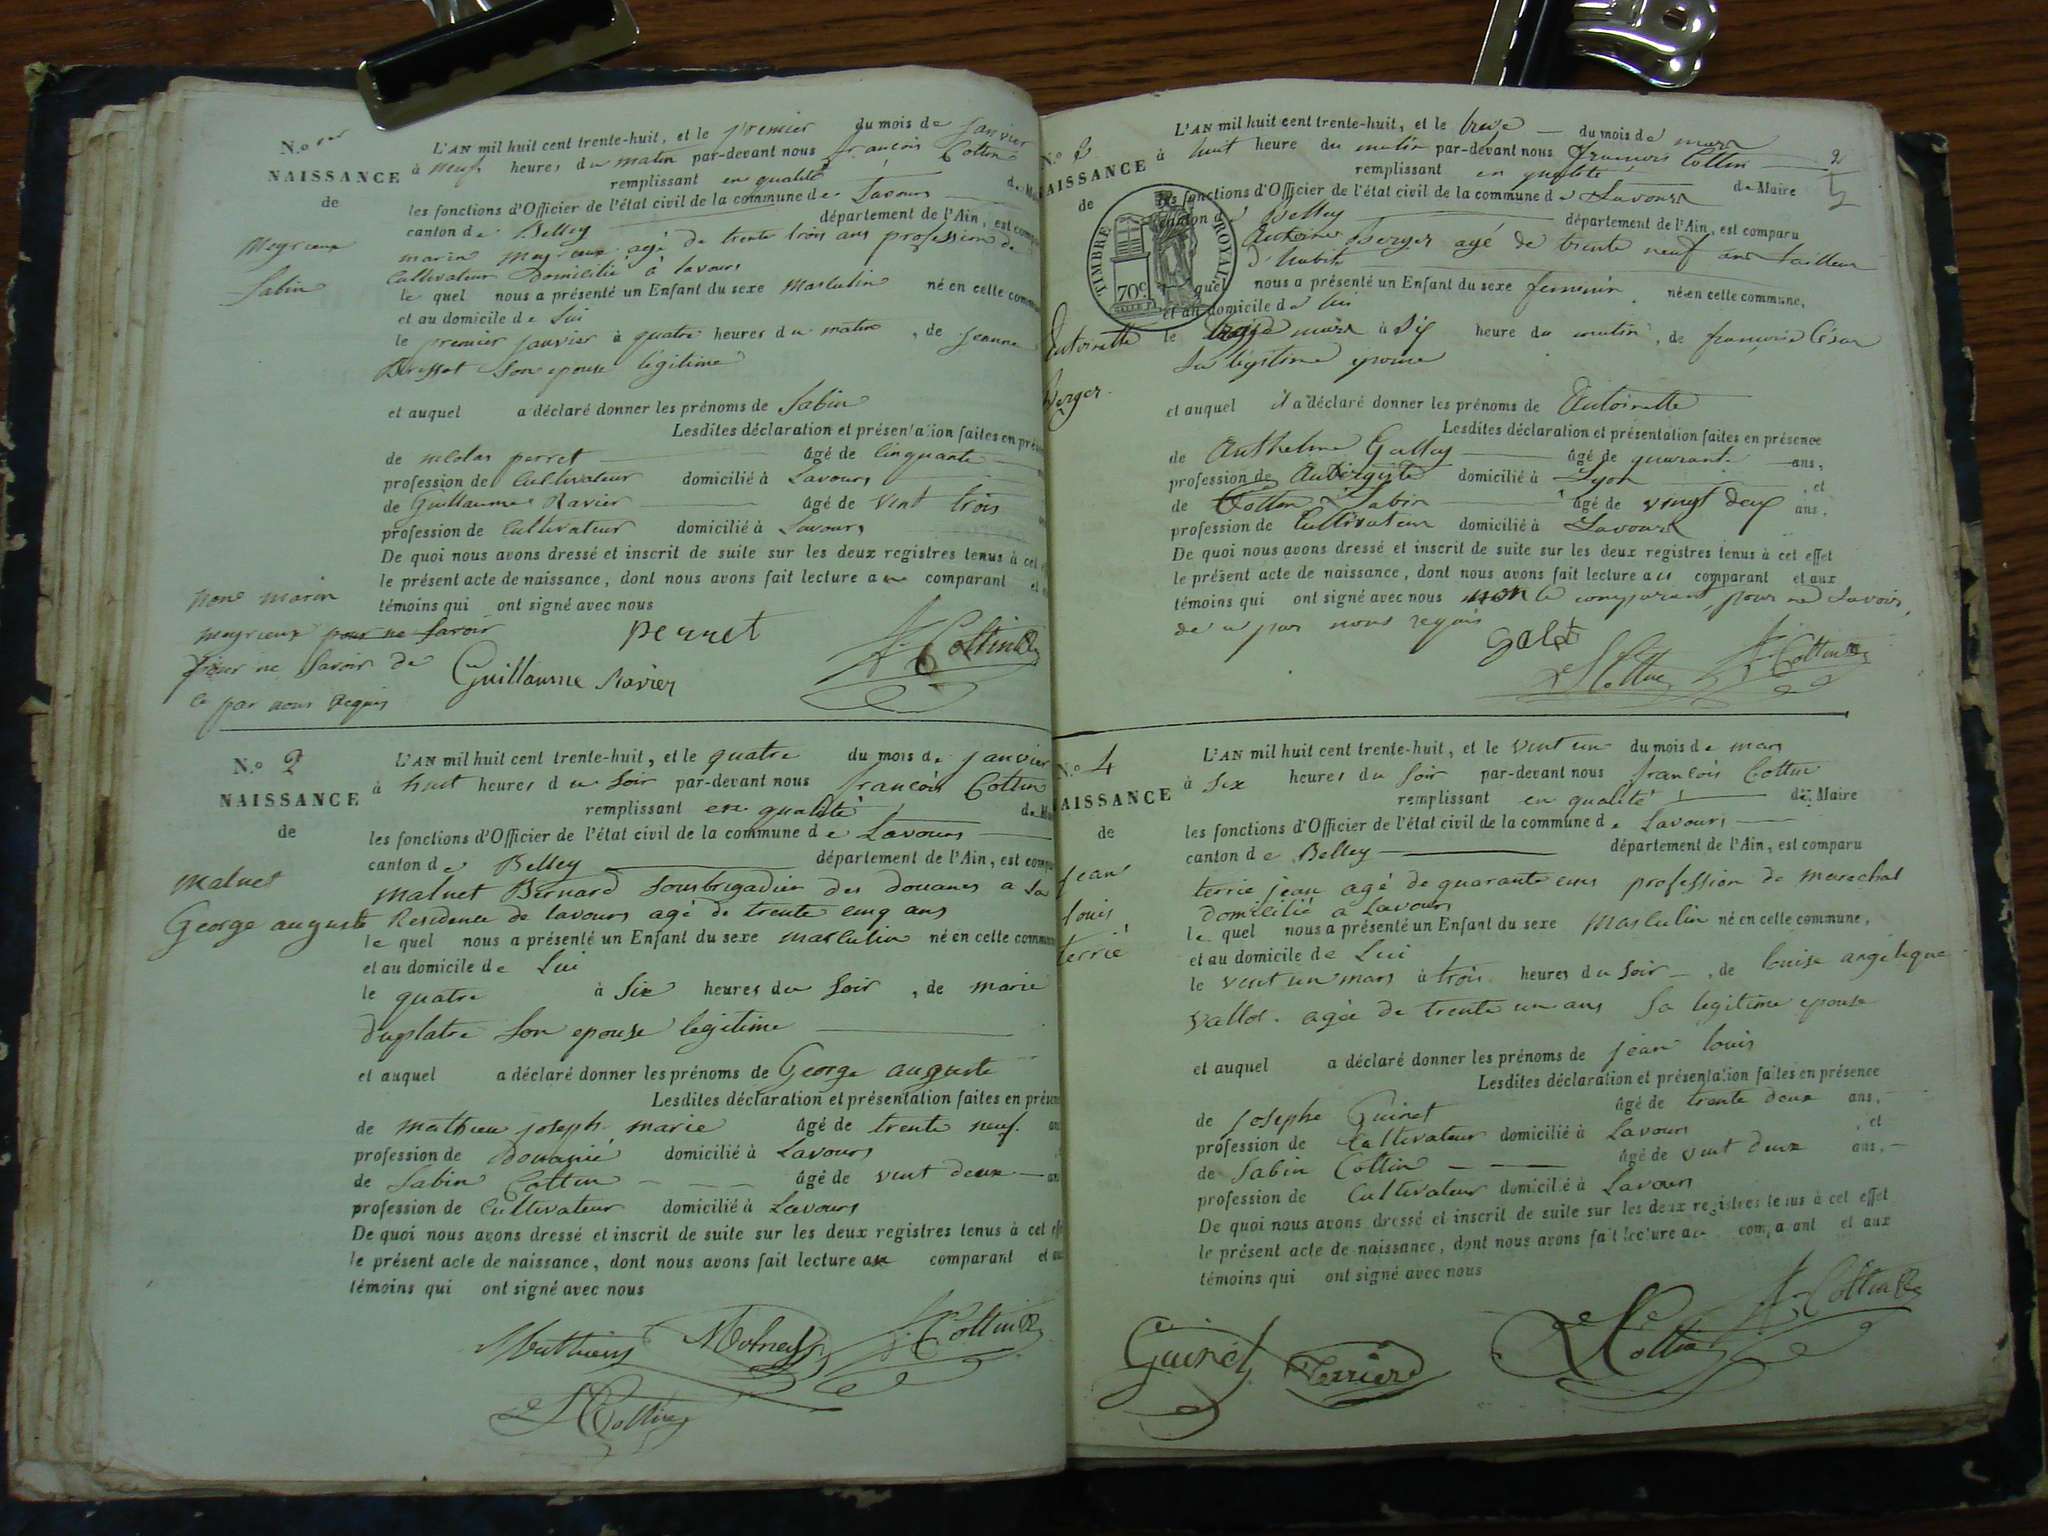 N.o 1er
NAISSANCE
de
Meyrieux
Sabin
L'AN mil huit cent trente-huit, et le premier du mois de janvier
à neuf heures du matin par-devant nous françois Cottin
remplissant en qualité de
les fonctions d'Officier de l'état civil de la commune de Lavours
canton de Belley département de l'Ain, est
marin Meyrieux agé de trente trois ans profession de
Cultivateur Domicilié à lavours
le quel nous a présenté un Enfant du sexe Masculin né en cette
et au domicile de Lui
le premier janvier à quatre heures du matin, de jeanne
son epouse légitime
et auquel a déclaré donner les prénoms de Sabin
Lesdites déclaration et présentation faites en
de nicolas perret âgé de Cinquante
profession de Cultivateur domicilié à Lavours
de Guillaume Ravier âgé de vint trois
profession de Cultivateur domicilié à Lavours
De quoi nous avons dressé et inscrit de suite sur les deux registres tenus à cet
le présent acte de naissance, dont nous avons fait lecture au comparant et
témoins qui ont signé avec nous
non marin
meyrieux pour ne savoir
pour ne savoir de
ce par nous Requis
perret
Guillaume Ravier
f. Cottin
N.o 2
NAISSANCE
de
Malnet
George auguste
L'AN mil huit cent trente-huit, et le quatre du mois de janvier
à huit heures du soir par-devant nous françois Cottin
remplissant en qualité de
les fonctions d'Officier de l'état civil de la commune de Lavours
canton de Belley département de l'Ain, est
Malnet Bernard sousbrigadier des douanes a sa
Residence de lavours agé de trente cinq ans
le quel nous a présenté un Enfant du sexe masculin né en cette
et au domicile de Lui
le quatre à Six heures du soir, de marie
duplatre son epouse legitime
et auquel a déclaré donner les prénoms de George auguste
Lesdites déclaration et présentation faites en
de mathieu joseph marie âgé de trente neuf
profession de Douanié domicilié à Lavours
de Sabin Cottin âgé de vint deux
profession de Cultivateur domicilié à Lavours
De quoi nous avons dressé et inscrit de suite sur les deux registres tenus à cet
le présent acte de naissance, dont nous avons fait lecture au comparant et
témoins qui ont signé avec nous
Mathieu
f. Cottin
S Cottin
NAISSANCE
de
Antoinette
Berger
TIMBRE ROYAL
70c
L'AN mil huit cent trente-huit, et le treize du mois de mars
à huit heure du matin par-devant nous françois Cottin
remplissant en qualité de Maire
les fonctions d'Officier de l'état civil de la commune de Lavours
canton de Belley département de l'Ain, est comparu
Antoine Berger agé de trente neuf ans tailleur
d'habits
le quel nous a présenté un Enfant du sexe feminin né en cette commune,
et au domicile de lui
le treize mars à six heure du matin, de françoise César
sa légitime épouse
et auquel il a déclaré donner les prénoms de Antoinette
Lesdites déclaration et présentation faites en présence
de Anthelme âgé de quarante ans,
profession de Aubergiste domicilié à Lyon et
de Cottin Sabin âgé de vingt deux ans.
profession de Cultivateur domicilié à Lavours
De quoi nous avons dressé et inscrit de suite sur les deux registres tenus à cet effet
le présent acte de naissance, dont nous avons fait lecture au comparant et aux
témoins qui ont signé avec nous non le comparant pour ne savoir,
de ce par nous requis
S Cottin
f. Cottin
N.o 4
NAISSANCE
de
jean
louis
terrié
L'AN mil huit cent trente-huit, et le vint un du mois de mars
à six heures du soir par-devant nous françois Cottin
remplissant en qualité de Maire
les fonctions d'Officier de l'état civil de la commune de Lavours
canton de Belley département de l'Ain, est comparu
terrie jean agé de quarante ans profession de marechal
domicilié a Lavours
le quel nous a présenté un Enfant du sexe Masculin né en cette commune,
et au domicile de Lui
le vint un mars à trois heures du soir, de louise angelique
Vallot agée de trente un ans sa legitime epouse
et auquel a déclaré donner les prénoms de jean louis
Lesdites déclaration et présentation faites en présence
de josephe Guinet âgé de trente deux ans,
profession de Cultivateur domicilié à Lavours et
de Sabin Cottin âgé de vint deux ans,
profession de Cultivateur domicilié à Lavours
De quoi nous avons dressé et inscrit de suite sur les deux registres tenus à cet effet
le présent acte de naissance, dont nous avons fait lecture au comparant et aux
témoins qui ont signé avec nous
Guinet
Terrier
S Cottin
f. Cottin